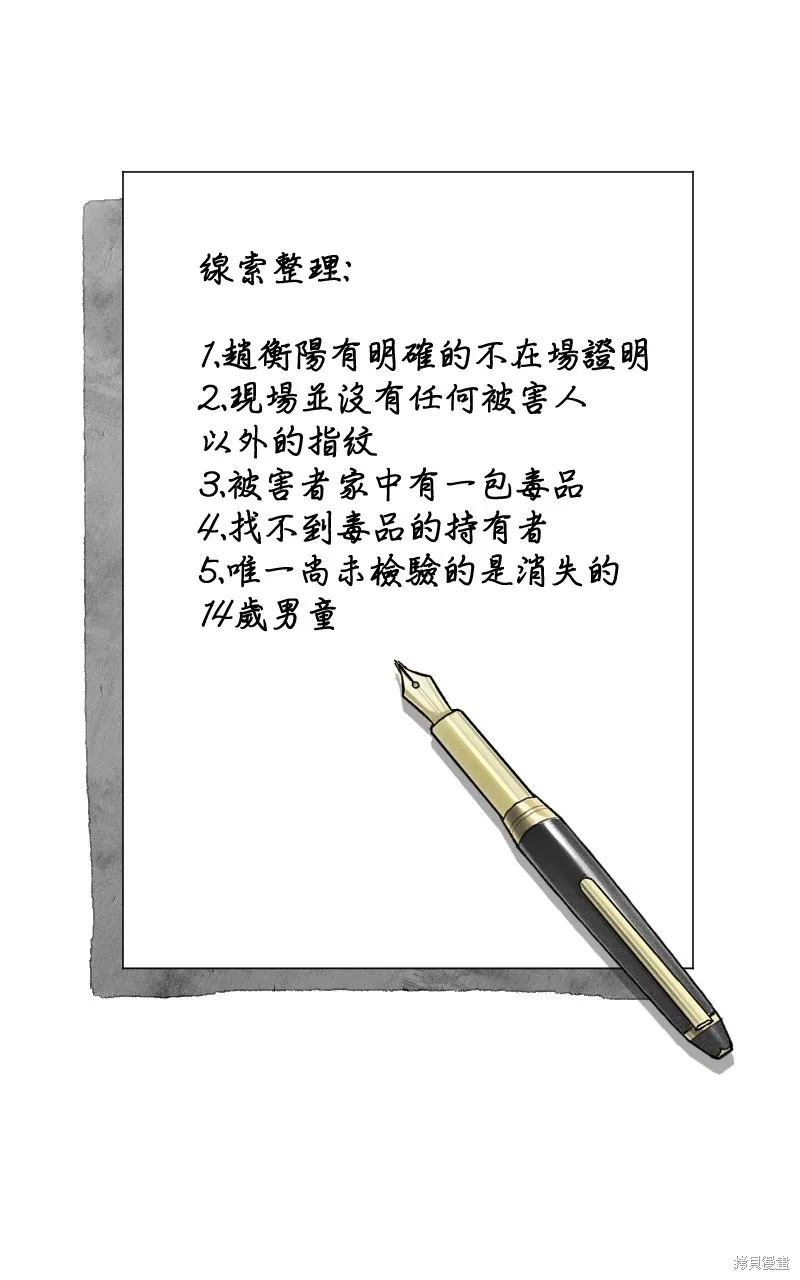 線索整理:
1.趙衡陽有明確的不在場證明
2.現場並沒有任何被害人
以外的指紋
3.被害者家中有一包毒品
4.找不到毒品的持有者
5.唯一尚未檢驗的是消失的
14歲男童
拷貝漫畫